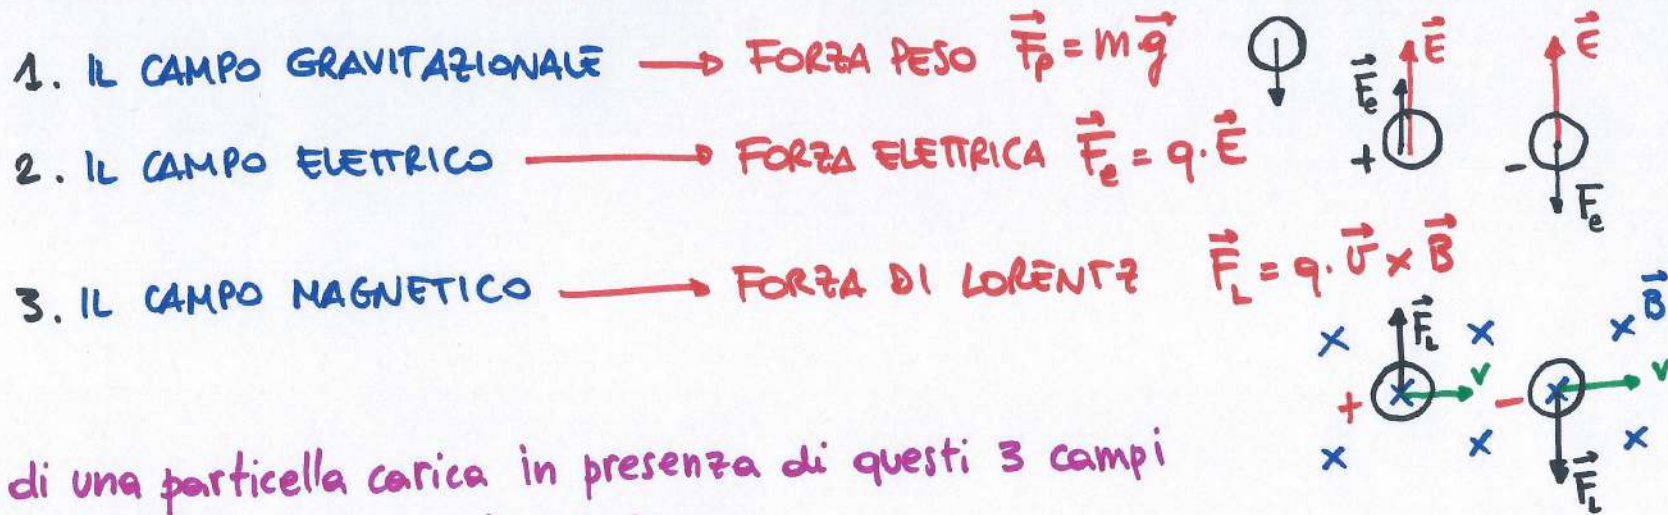 1. IL CAMPO GRAVITAZIONALE → FORZA PESO F⃗p = m g⃗
E⃗ E⃗
F⃗e
+
2. IL CAMPO ELETTRICO → FORZA ELETTRICA F⃗e = q · E⃗
-
Fe
3. IL CAMPO MAGNETICO → FORZA DI LORENTZ F⃗L = q · v⃗ × B⃗
× F⃗L × × B⃗
+ × v - × v
× × ×
F⃗L
di una particella carica in presenza di questi 3 campi